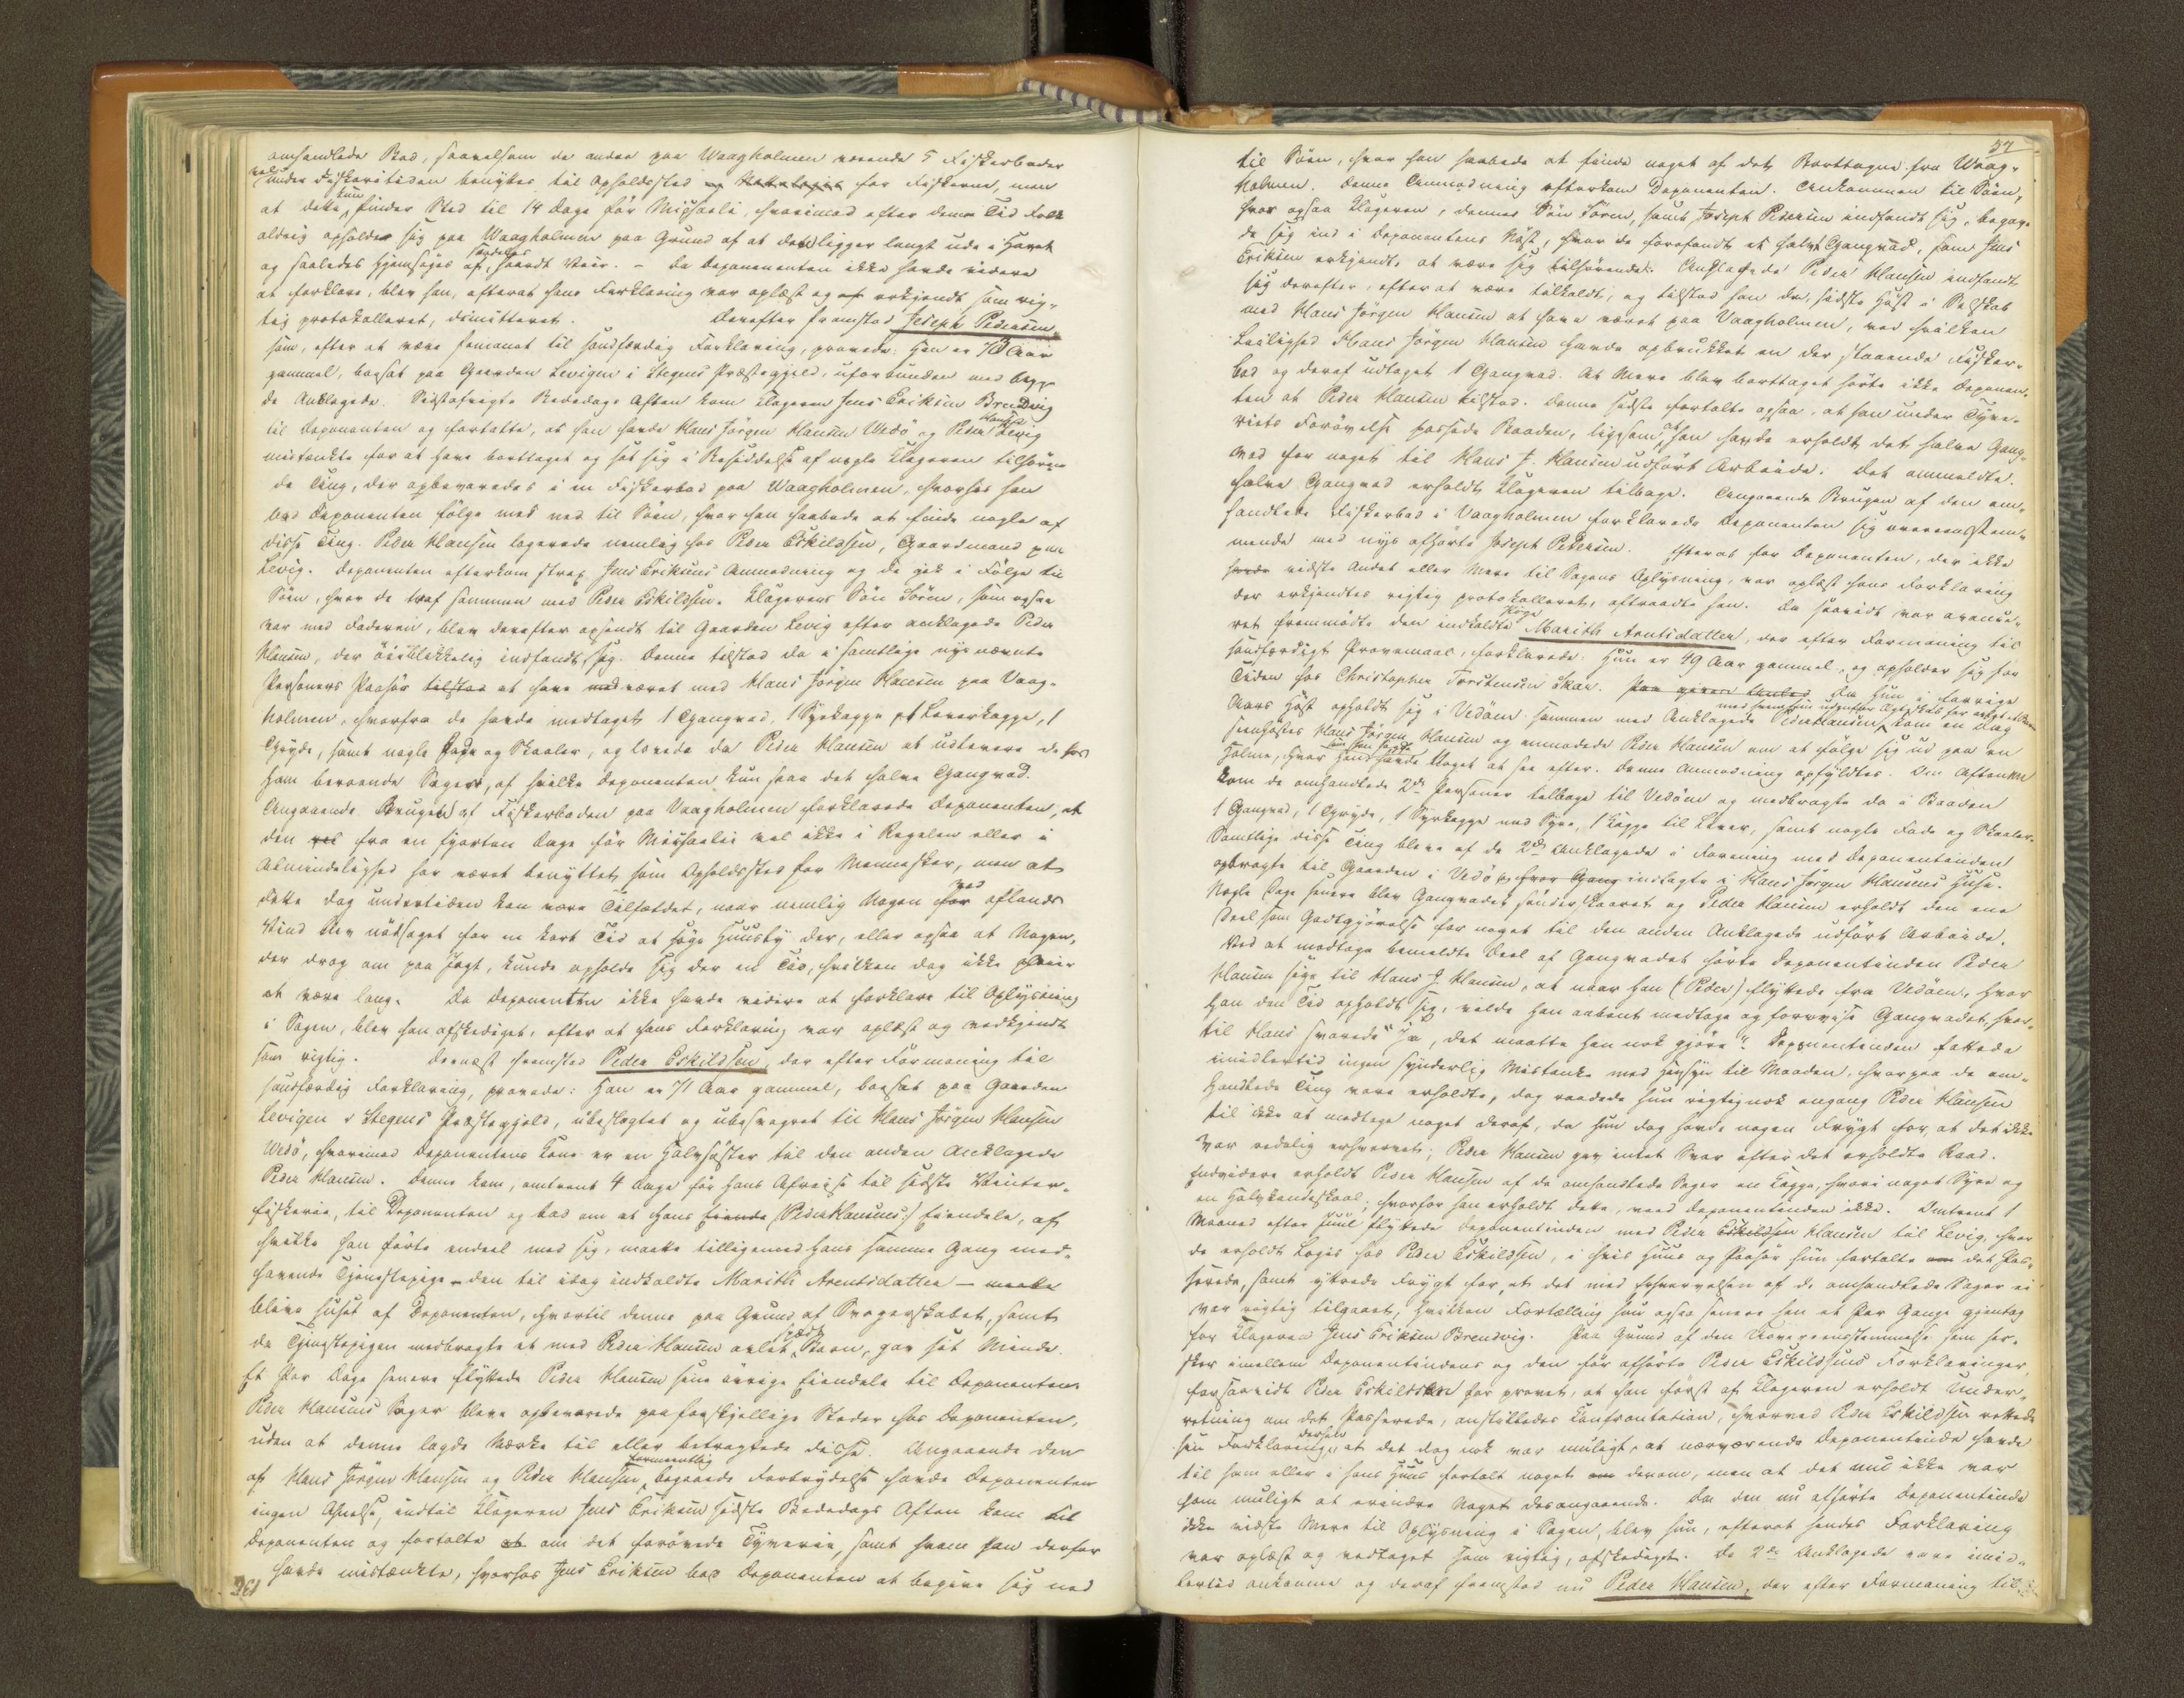 omhandlede Bod, saavelsom de andre paa Waagholmen værende 5 Fiskerboder
vel under Fisketiden benyttes til Opholdssted for Fiskerne, men
at dette kun finder Sted til 14 Dage før Michaeli, hvorimod efter denne Tid Folk
aldrig opholder sig paa Waagholmen paa Grund af at den ligger langt ude i Havet
og saaledes hjemsøges af særdeles haardt Veir. – Da Deponenten ikke havde videre
at forklare, blev han, efterat hans Forklaring var oplæst og erkjendt som rig-
tig protokolleret, dimitteret. Derefter fremstod Joseph Pedersen
som, efter at være formanet til sandfærdig Forklaring, provede: Han er Aar
gammel, bosat paa Gaarden Levigen i Stegens Præstegjeld, uforbunden med begge
de Anklagede. Sidstafvigte Bededags Aften kom Klageren Jens Eriksen Brendvig
til Deponenten og fortalte, at han havde Hans Jørgen Hansen Vedø og Peder Hansen Levig
mistænkte for at have borttaget og sat sig i Besiddelse af nogle Klageren tilhøren-
de Ting, der opbevaredes i en Fiskerbod paa Waagholmen, hvorhos han
bad Deponenten følge med ned til Søen, hvor han haabede at finde nogle af
disse Ting. Peder Hansen logerede nemlig hos Peder Eskildsen, Gaardmand paa
Levig. Deponenten efterkom strax Jens Eriksens Anmodning og de gik i Følge til
Søen, hvor de traf sammen med Peder Eskildsen. Klagerens Søn Søren, som ogsaa
var med Faderen, blev derefter opsendt til Gaarden Levig efter Anklagede Peder
Hansen, der øieblikkelig indfandt sig. Denne tilstod da i samtlige nysnævnte
Personers Paahør at have været med Hans Jørgen Hansen paa Vaag-
holmen, hvorfra de havde medtaget 1 Gangvad, 1 Syrekagge, 1 Leverkagge, 1
Gryde, samt nogle Fade og Skaaler, og lovede da Peder Hansen at udlevere de hos
ham beroende Sager, af hvilke Deponenten kun saa det halve Gangvad.
Angaaende Brugen af Fiskerboden paa Vaagholmen forklarede Deponenten, at
den fra en fjorten Dage før Michaeli vel ikke i Regelen eller i
Almindelighed har været benyttet som Opholdssted for Mennesker, men at
dette dog undertiden kan være Tilfældet, naar nemlig Nogen ved aflands
Vind blev nødsaget for en kort Tid at søge Huusly der, eller ogsaa at Nogen,
der drog om paa Jagt, kunde opholde sig der en Tid, hvilken dog ikke pleier
at være lang. Da Deponenten ikke havde videre at forklare til Oplysning
i Sagen, blev han afskediget, efter at hans Forklaring var oplæst og vedkjendt
som rigtig. Dernæst fremstod Peder Eskildsen, der efter Formaning til
sandfærdig Forklaring, provede: Han er 71 Aar gammel, bosat paa Gaarden
Levigen i Stegens Præstegjeld, ubeslægtet og ubesvogret til Hans Jørgen Hansen
Vedø, hvorimod Deponentens Kone er en Halvsøster til den anden Anklagede
Peder Hansen. Denne kom, omtrent 4 Dage før hans Afreise til sidste Vinter-
fiskerie, til Deponenten og bad om at hans (Peder Hansens) Eiendele, af
hvilke han førte endeel med sig, maatte tilligemed hans samme Gang med-
havende Tjenestepige – den til idag indkaldte Marith Arentsdatter –
blive huset af Deponenten, hvortil denne paa Grund af Svogerskabet, samt
da Tjenestepigen medbragte et med Peder Hansen avlet spædt Barn, gav sit Minde.
Et Par Dage senere flyttede Peder Hansen sine øvrige Eiendele til Deponenten.
Peder Hansens Sager bleve opbevarede paa forskjellige Steder hos Deponenten,
uden at denne lagde Mærke til eller betragtede disse. Angaaende den
af Hans Jørgen Hansen og Peder Hansen formeentlig begaaede Forbrydelse havde Deponenten
ingen Anelse, indtil Klageren Jens Eriksen sidste Bededags Aften kom til
Deponenten og fortalte om det forøvede Tyverie, samt hvem han derfor
havde mistænkte, hvorhos Jens Eriksen bad Deponenten at begive sig ned
261
57
til Søen, hvor han haabede at finde noget af det Borttagne fra Waag-
holmen. Denne Anmodning efterkom Deponenten. Ankommen til Søen,
hvor ogsaa Klageren, dennes Søn Søren, samt Joseph Pedersen indfandt sig, begave
de sig ind i Deponentens Nøst, hvor de forefandt et halvt Gangvad, som Jens
Eriksen erkjendte at være sig tilhørende. Anklagede Peder Hansen indfandt
sig derefter, efterat være tilkaldt, og tilstod han da, sidste Høst i Selskab
med Hans Jørgen Hansen at have været paa Vaagholmen, ved hvilken
Leilighed Hans Jørgen Hansen havde opbrukket en der staaende Fisker-
bod og deraf udtaget 1 Gangvad. At Mere blev borttaget hørte ikke Deponen-
ten at Peder Hansen tilstod. Denne sidste fortalte ogsaa, at han under Tyve-
riets Forøvelse passede Baaden, ligesom at han havde erholdt det halve Gang-
vad for noget til Hans J. Hansen udført Arbeide. Det anmeldte
halve Gangvad erholdt Klageren tilbage. Angaaende Brugen af den om-
handlede Fiskerbod i Vaagholmen forklarede Deponenten sig overeenstem-
mende med nys afhørte Joseph Pedersen. Efterat for Deponenten, der ikke
vidste Andet eller Mere til Sagens Oplysning, var oplæst hans Forklaring
der erkjendtes rigtig protokolleret, aftraadte han. Da saavidt var avance-
ret fremmødte den indkaldte Pige Marith Arntsdatter, der efter Formaning til
sandfærdigt Provemaal, forklarede: Hun er 49 Aar gammel, og opholder sig for
Tiden hos Christopher Torstensen Skar. Da hun i forrige
Aars Høst opholdt sig i Vedøen sammen med Anklagede Peder Hansen, med hvem hun udenfor Ægteskab har avlet et Barn, kom en Dag
Hans Jørgen Hansen og anmodede Peder Hansen om at følge sig ud paa en
Holme, hvor Hans havde Noget at see efter. Denne Anmodning opfyldtes. Om Aftenen
kom de omhandlede 2de Personer tilbage til Vedøen og medbragte da i Baaden
1 Gangvad, 1 Gryde, 1 Syrkagge med Syre, 1 Kagge til Lever, samt nogle Fade og Skaaler.
Samtlige disse Ting bleve af de 2de Anklagede i Forening med Deponentinden
opbragte til Gaarden i Vedø og indlagte i Hans Jørgen Hansens Huse.
Nogle Dage senere blev Gangvadet sønderskaaret og Peder Hansen erholdt den ene
Deel som Godtgjørelse for noget til den anden Anklagede udført Arbeide.
Ved at modtage bemeldte Deel af Gangvadet hørte Deponentinden Peder
Hansen sige til Hans J. Hansen, at naar han (Peder) flyttede fra Vedøen, hvor
han den Tid opholdt sig, vilde han aabent medtage og forevise Gangvadet, hvor-
til Hans svarede "Ja, det maatte han nok gjøre". Deponentinden fattede
imidlertid ingen synderlig Mistanke med Hensyn til Maaden, hvorpaa de om-
handlede Ting vare erholdte, dog raadede hun rigtignok engang Peder Hansen
til ikke at modtage noget deraf, da hun dog havde nogen Frygt for, at det ikke
var redelig erhvervet; Peder Hansen gav intet Svar efter det erholdte Raad.
Endvidere erholdt Peder Hansen af de omhandlede Sager en Kagge, hvori noget Syre og
en Halvkandeskaal; hvorfor han erholdt dette, veed Deponentinden ikke. Omtrent 1
Maaned efter Juul flyttede Deponentinden med Peder Hansen til Levig, hvor
de erholdt Logis hos Peder Eskildsen, i hvis Huus og Paahør hun fortalte det Pas-
serede, samt yttrede Frygt for, at det med Erhvervelsen af de omhandlede Sager ei
var rigtig tilgaaet, hvilken Fortælling hun ogsaa senere hen et Par Gange gjentog
for Klageren Jens Eriksen Brendvig. Paa Grund af den Uovereensstemmelse som her-
sker imellem Deponentindens og den før afhørte Peder Eskildsens Forklaringer,
forsaavidt Peder Eskildsen har provet, at han først af Klageren erholdt Under-
retning om det Passerede, anstilledes Confrontation, hvorved Peder Eskildsen rettede
sin Forklaring derhen at det dog nok var muligt, at nærværende Deponentinde havde
til ham eller i hans Huus fortalt noget derom, men at det nu ikke var
ham muligt at erindre Noget desangaaende. Da den nu afhørte Deponentinde
ikke vidste Mere til Oplysning i Sagen, blev hun, efterat hendes Forklaring
var oplæst og vedtaget som rigtig, afskediget. De 2de Anklagede vare imid-
lertid ankomne og deraf fremstod nu Peder Hansen, der efter Formaning til